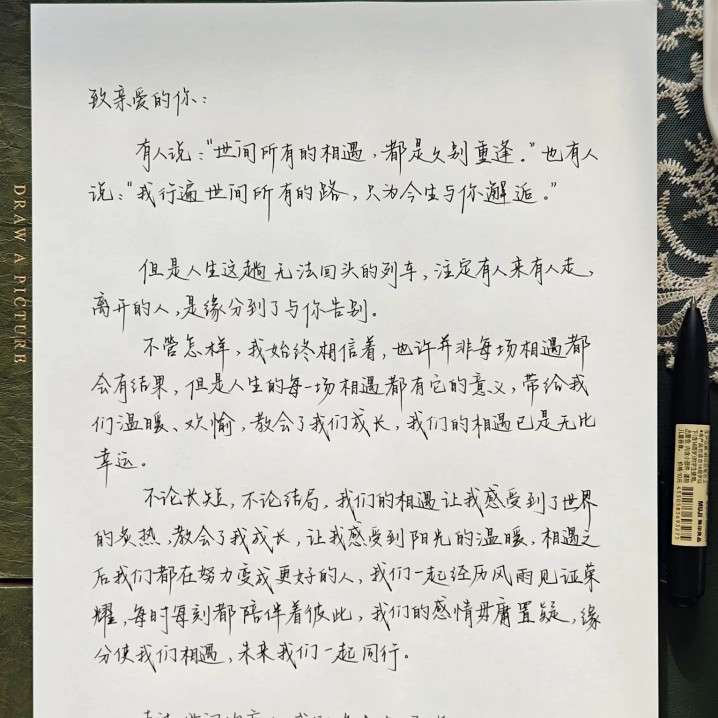 致亲爱的你：
有人说：“世间所有的相遇，都是久别重逢。”也有人
说：“我行遍世间所有的路，只为今生与你邂逅。”
但是人生这趟无法回头的列车，注定有人来有人走，
离开的人，是缘分到了与你告别。
不管怎样，我始终相信着，也许并非每场相遇都
会有结果，但是人生的每一场相遇都有它的意义，带给我
们温暖、欢愉，教会了我们成长，我们的相遇已是无比
幸运。
不论长短，不论结局，我们的相遇让我感受到了世界
的炙热，教会了我成长，让我感受到阳光的温暖，相遇之
后我们都在努力变成更好的人，我们一起经历风雨见证荣
耀，每时每刻都陪伴着彼此，我们的感情毋庸置疑，缘
分使我们相遇，未来我们一起同行。
DRAW A PICTURE
MUJI 無印良品